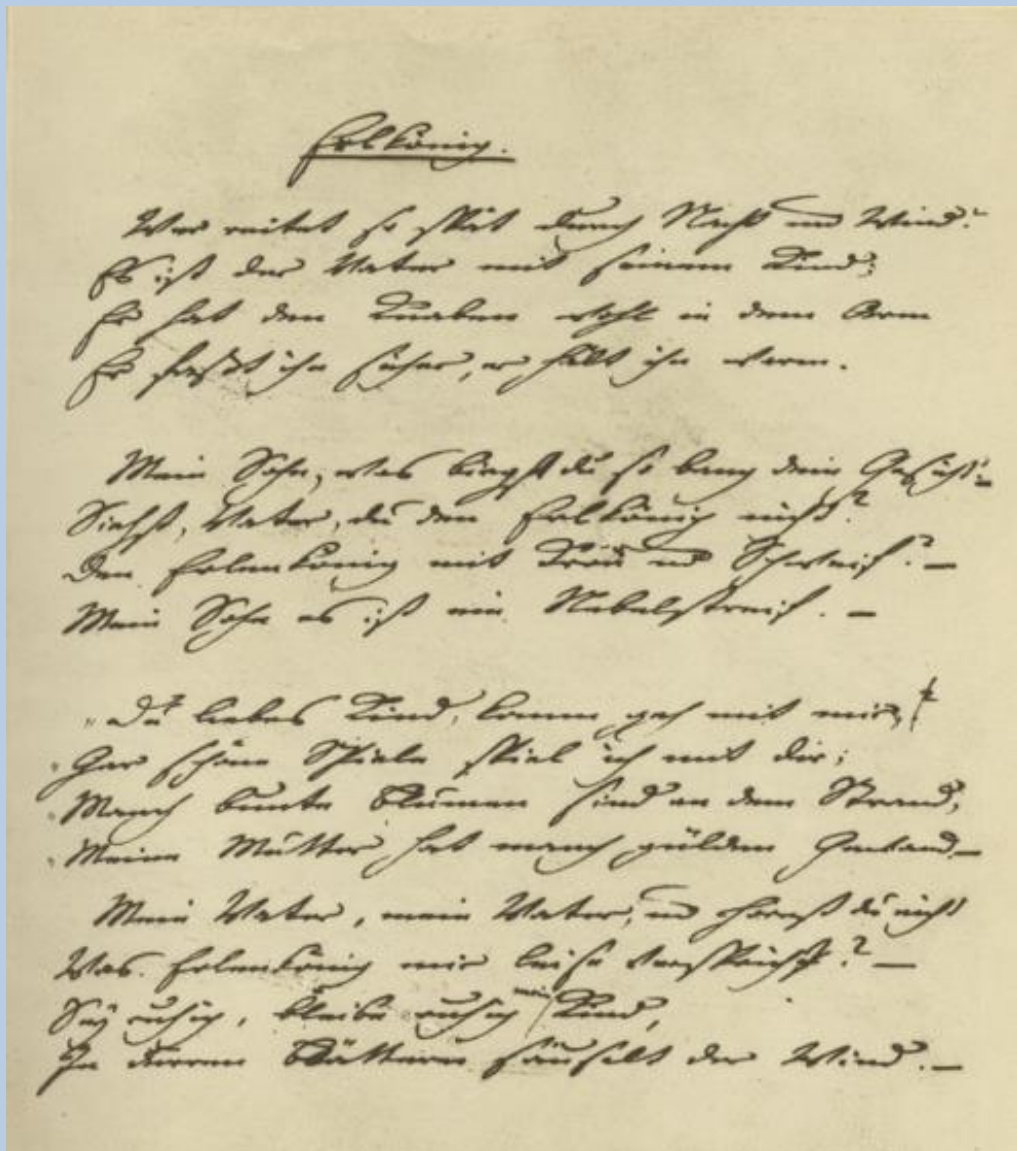 Erlkönig.
Wer reitet so spät durch Nacht und Wind?
Es ist der Vater mit seinem Kind;
Er hat den Knaben wohl in dem Arm
Er faßt ihn sicher, er hält ihn warm.
Mein Sohn, was birgst du so bang dein Gesicht? –
Siehst, Vater, du den Erlkönig nicht?
Den Erlenkönig mit Kron und Schweif? –
Mein Sohn es ist ein Nebelstreif. –
„Du liebes Kind, komm geh mit mir,
„Gar schöne Spiele spiel ich mit dir;
„Manch bunte Blumen sind an dem Strand,
„Meine Mutter hat manch gülden Gewand –
Mein Vater, mein Vater, und hörest du nicht
Was Erlenkönig mir leise verspricht? –
Sey ruhig, bleibe ruhig mein Kind,
In dürren Blättern säuselt der Wind. –